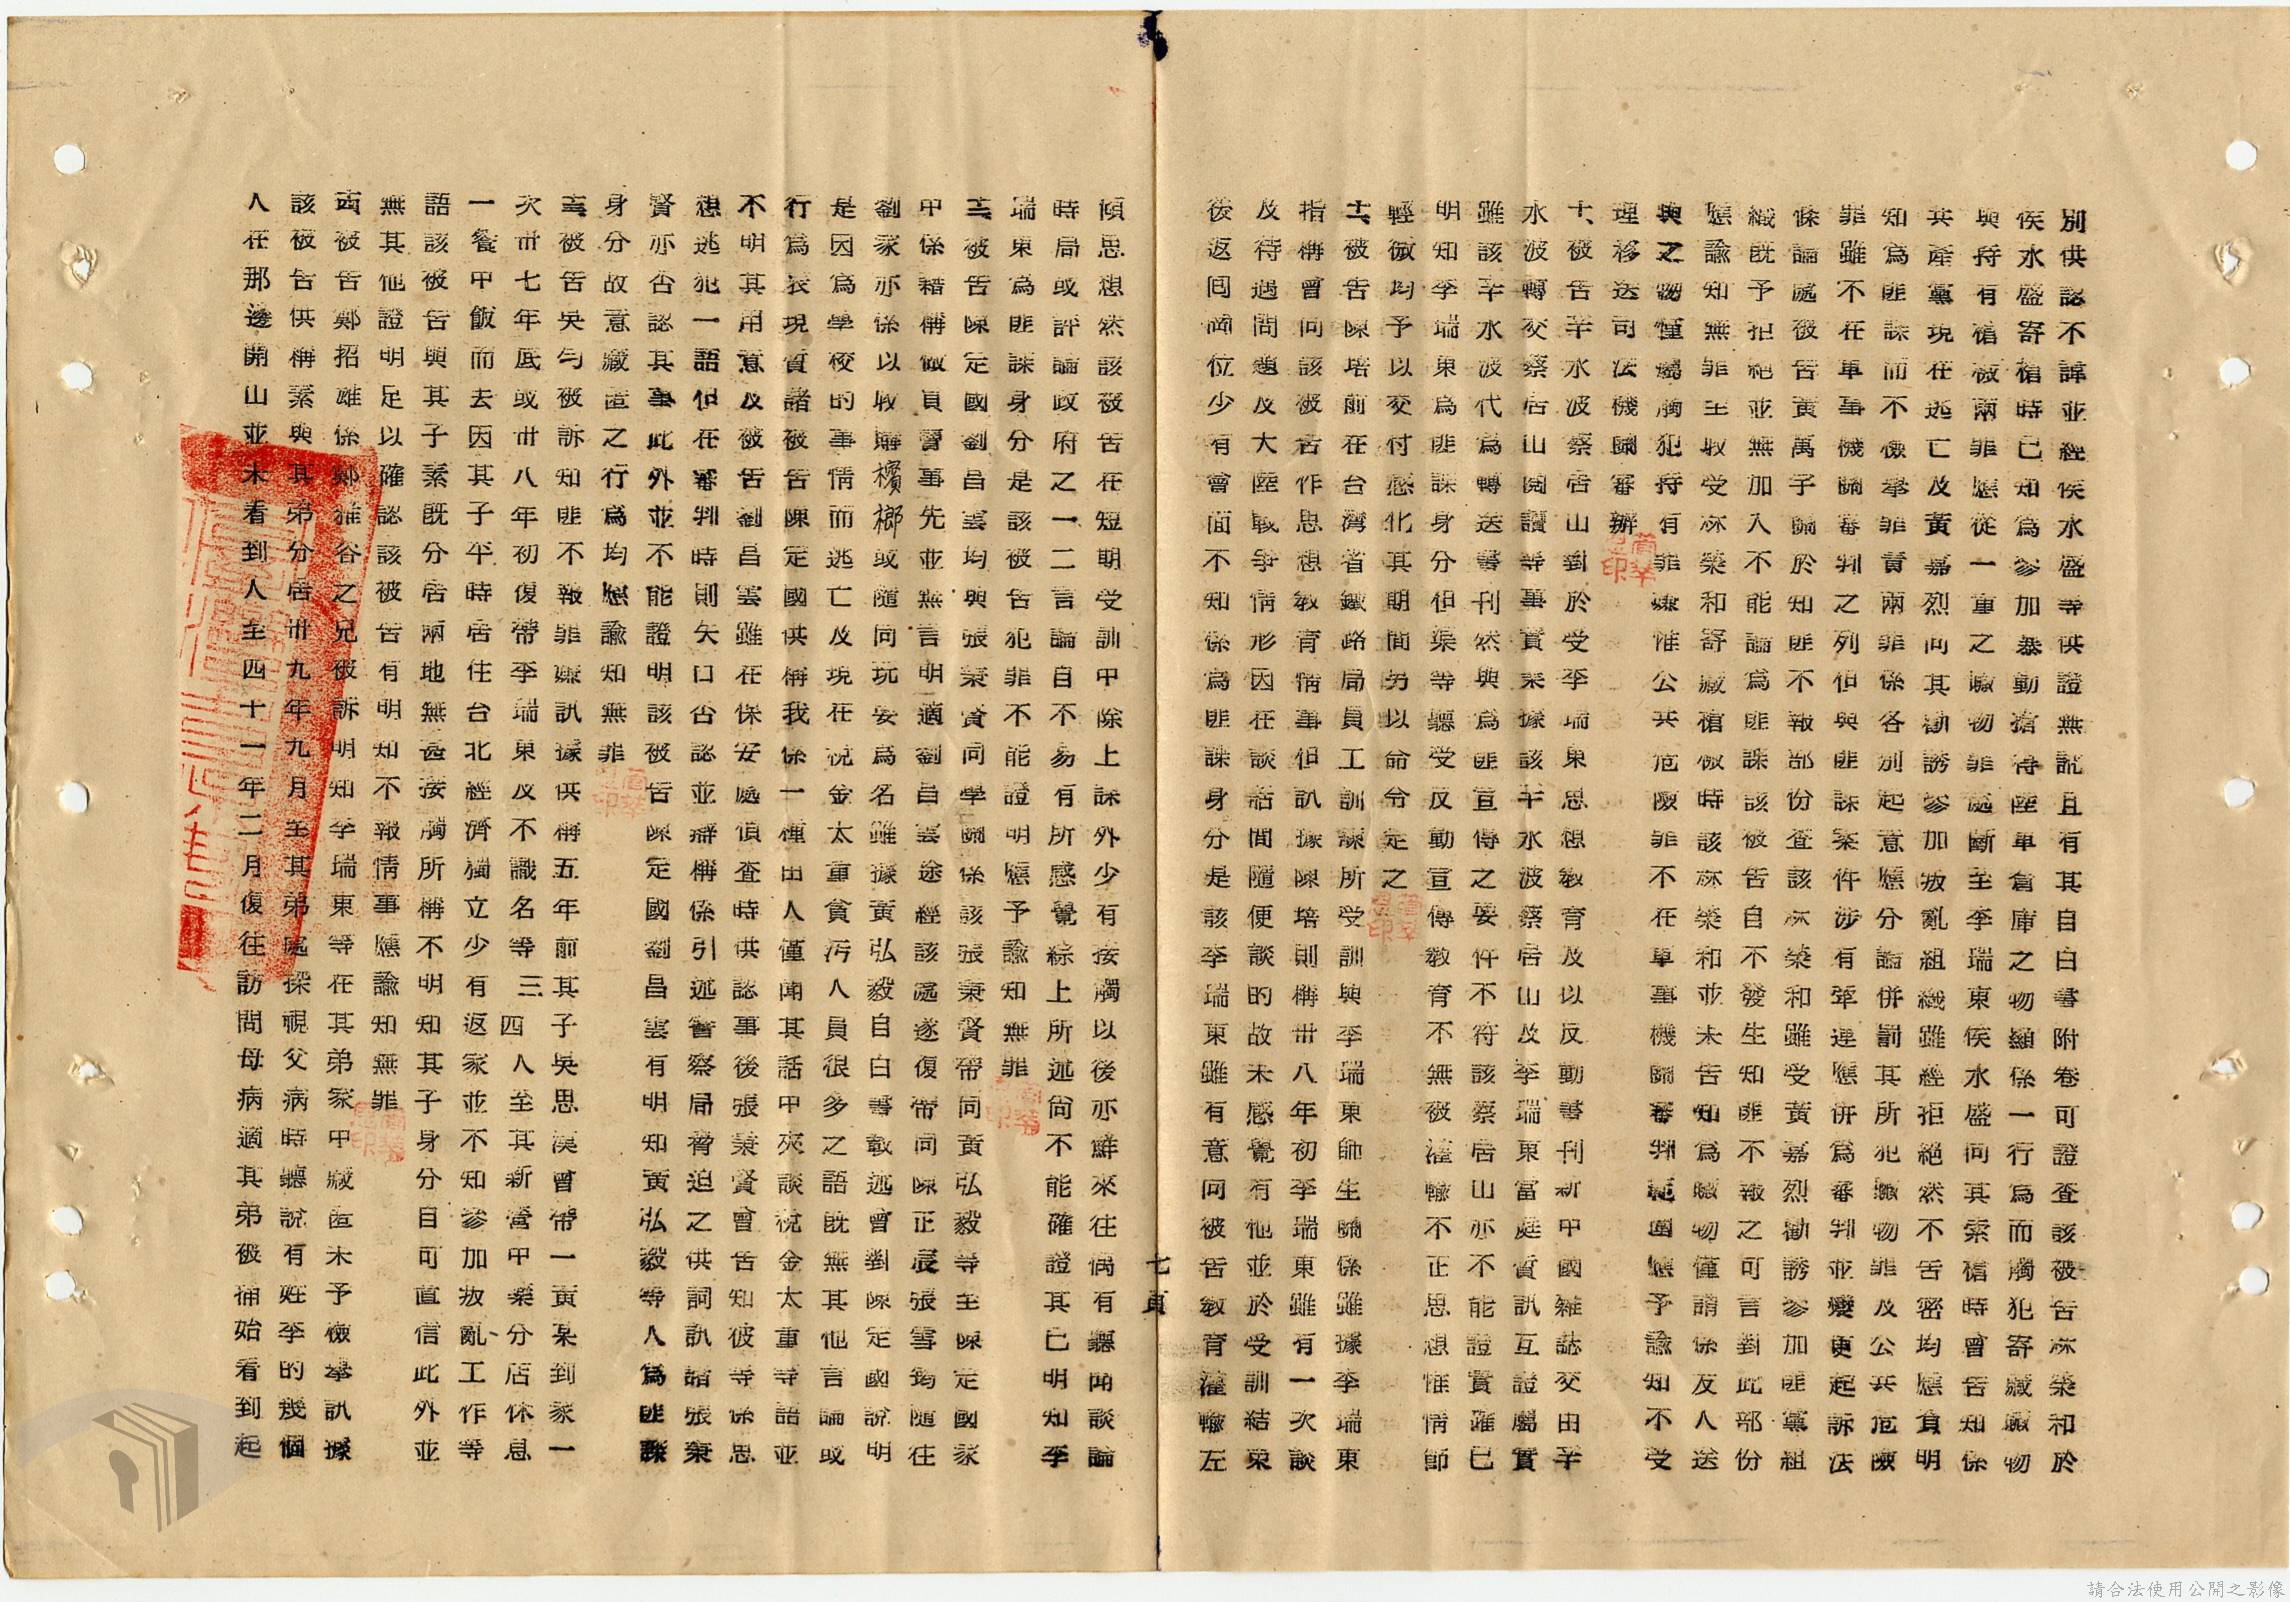 別供認不諱並經侯水盛等供證無訛且有其自白書附卷可證查該被告林榮和於
侯水盛寄槍時已知為參加暴動搶得陸軍倉庫之物顯係一行為而觸犯寄藏贓物
與持有槍械兩罪應從一重之贓物罪處斷至李瑞東侯水盛向其索槍時曾告知係
共產黨現在逃亡及黃嘉烈向其勸誘參加叛亂組織雖經拒絕然不告密均應負明
知為匪諜而不檢舉罪責兩罪係各別起意應分論併罰其所犯贓物罪及公共危險
罪雖不在軍事機關審判之列但與匪諜案件涉有牽連應併為審判並變更起訴法
條論處被告黃萬子關於知匪不報部份查該林榮和雖受黃嘉烈勸誘參加匪黨組
織既予拒絕並無加入不能論為匪諜該被告自不發生知匪不報之可言對此部份
應諭知無罪至收受林榮和寄藏槍械時該林榮和並未告知為贓物僅謂係友人送
與之物僅屬觸犯持有罪嫌惟公共危險罪不在軍事機關審判範圍應予諭知不受
理移送司法機關審辦
十、被告羊水波蔡居山對於受李瑞東思想教育及以反動書刊新中國雜誌交由羊
水波轉交蔡居山閱讀等事實業據該羊水波蔡居山及李瑞東當庭質訊互證屬實
雖該羊水波代為轉送書刊然與為匪宣傳之要件不符該蔡居山亦不能證實雖已
明知李瑞東為匪諜身分但渠等聽受反動宣傳教育不無被灌輸不正思想惟情節
輕微均予以交付感化其期間另以命令定之
十一、被告陳培前在台灣省鐵路局員工訓練所受訓與李瑞東師生關係雖據李瑞東
指稱曾向該被告作思想教育情事但訊據陳培則稱卅八年初李瑞東雖有一次談
及待遇問題及大陸戰爭情形因在談話間隨便談的故未感覺有他並於受訓結束
後返回崗位少有會面不知係為匪諜身分是該李瑞東雖有意向被告教育灌輸左
七頁
傾思想然該被告在短期受訓中除上課外少有接觸以後亦鮮來往偶有聽聞談論
時局或評論政府之一二言論自不易有所感覺綜上所述尚不能確證其已明知李
瑞東為匪諜身分是該被告犯罪不能證明應予諭知無罪
十二、被告陳定國劉昌雲均與張秉賢同學關係該張秉賢帶同黃弘毅等至陳定國家
中係藉稱做買賣事先並無言明適劉昌雲途經該處遂復帶同陳正宸張雪筠隨往
劉家亦係以收購檳榔或隨同玩耍為名雖據黃弘毅自白書載述曾對陳定國說明
是因為學校的事情而逃亡及現在稅金太重貪污人員很多之語既無其他言論或
行為表現質諸被告陳定國供稱我係一種田人僅聞其話中夾談稅金太重等語並
不明其用意及被告劉昌雲雖在保安處偵查時供認事後張秉賢曾告知彼等係思
想逃犯一語但在審判時則矢口否認並辯稱係引述警察局脅迫之供詞訊諸張秉
賢亦否認其事此外並不能證明該被告陳定國劉昌雲有明知黃弘毅等人為匪諜
身分故意藏匿之行為均應諭知無罪
十三、被告吳勻被訴知匪不報罪嫌訊據供稱五年前其子吳思漢曾帶一黃某到家一
次卅七年底或卅八年初復帶李瑞東及不識名等三四人至其新營中藥分店休息
一餐中飯而去因其子平時居住台北經濟獨立少有返家並不知參加叛亂工作等
語該被告與其子素既分居兩地無甚接觸所稱不明知其子身分自可直信此外並
無其他證明足以確認該被告有明知不報情事應諭知無罪
十四、被告鄭招雖係鄭雅谷之兄被訴明知李瑞東等在其弟家中藏匿未予檢舉訊據
該被告供稱素與其弟分居卅九年九月至其弟處探視父病時聽說有姓李的幾個
人在那邊開山並未看到人至四十一年二月復往訪問母病適其弟被捕始看到起
請合法使用公開之影像